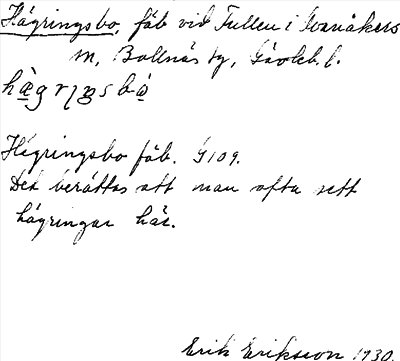 Hägringsbo, fäb vid Tullen i Svanåkers
m, Bollnäs tg, Gävleb. l.
Hägringsbo fäb. G109.
Det berättas att man ofta sett
hägringar här.
Erik Eriksson 1930.